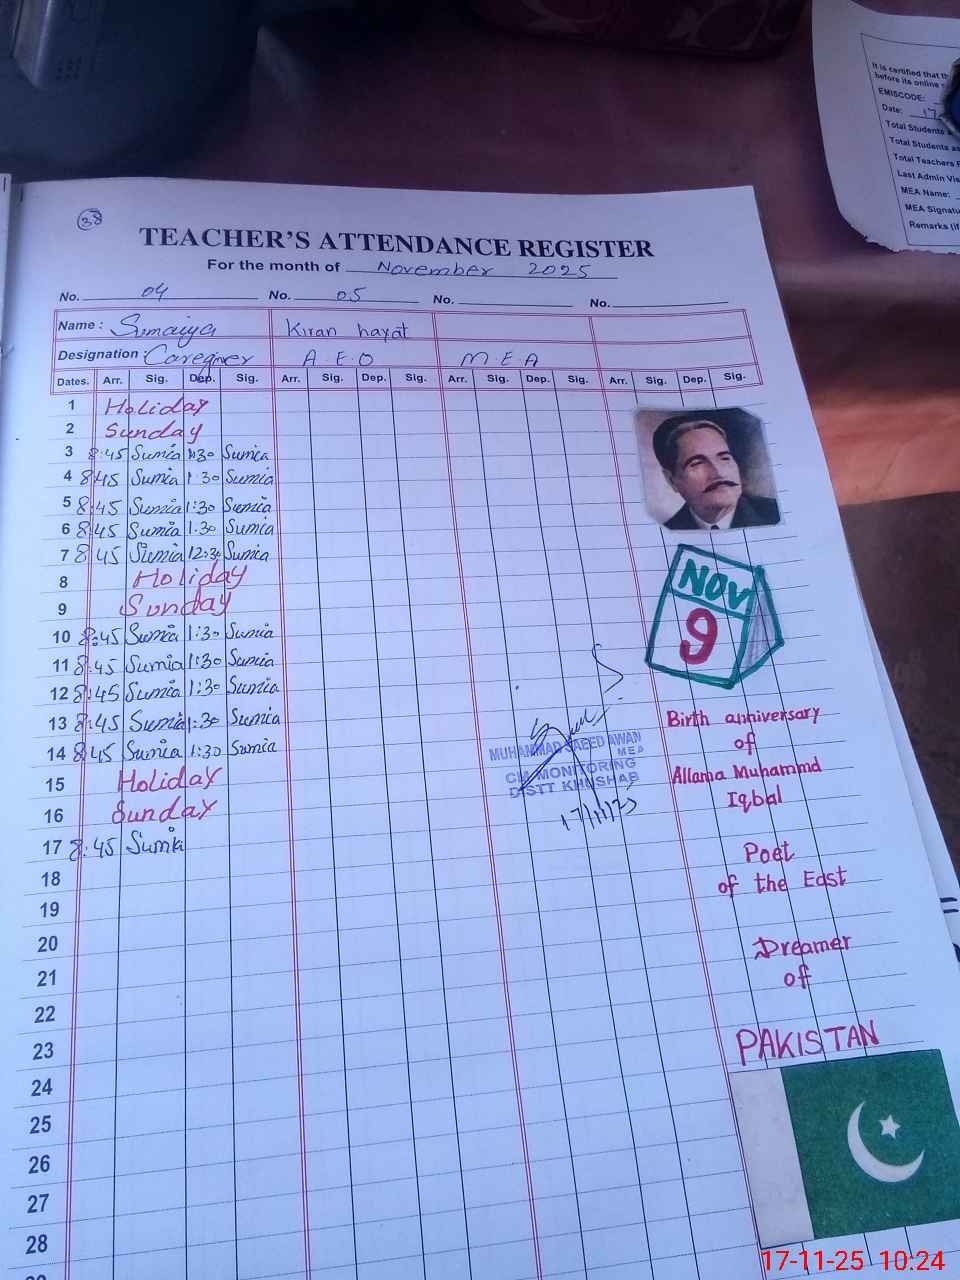 It is certified that th
before its online
EMISCODE:
Date: 17
Total Students a
Total Students as
Total Teachers P
Last Admin Vis
MEA Name:
MEA Signatu
Remarks (if
38
TEACHER'S ATTENDANCE REGISTER
For the month of November 2025
No. 04 No. 05 No. No.
Name: Sumaiya Kiran hayat
Designation: Caregiver A.E.O M.E.A
Dates. Arr. Sig. Dep. Sig. Arr. Sig. Dep. Sig. Arr. Sig. Dep. Sig. Arr. Sig. Dep. Sig.
1 Holiday
2 Sunday
3 8:45 Sumia 1:30 Sumia
4 8:45 Sumia 1:30 Sumia
5 8:45 Sumia 1:30 Sumia
6 8:45 Sumia 1:30 Sumia
7 8:45 Sumia 12:30 Sumia
8 Holiday
9 Sunday
10 8:45 Sumia 1:30 Sumia
11 8:45 Sumia 1:30 Sumia
12 8:45 Sumia 1:30 Sumia
13 8:45 Sumia 1:30 Sumia
14 8:45 Sumia 1:30 Sumia
15 Holiday
16 Sunday
17 8:45 Sumia
18
19
20
21
22
23
24
25
26
27
28
MUHAMMAD SAEED AWAN
MEA
CM MONITORING
DISTT KHUSHAB
NOV
9
Birth anniversary
of
Allama Muhammd
Iqbal
Poet
of the East
Dreamer
of
PAKISTAN
17-11-25 10:24